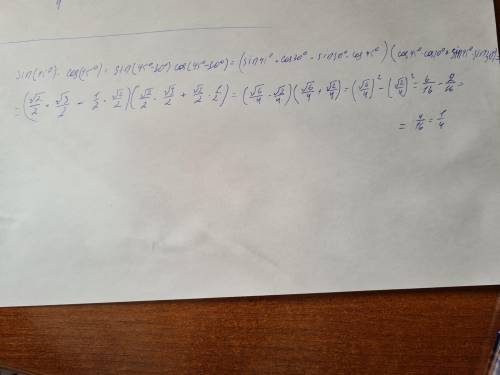 sin(15°) · cos(15°) = sin(45°-30°) cos(45°-30°) = (sin45° · cos30° - sin30° · cos45°) (cos45° · cos30° + sin45° · sin30°) =
= (√2/2 · √3/2 - 1/2 · √2/2) (√2/2 · √3/2 + √2/2 · 1/2) = (√6/4 - √2/4) (√6/4 + √2/4) = (√6/4)² - (√2/4)² = 6/16 - 2/16 =
= 4/16 = 1/4